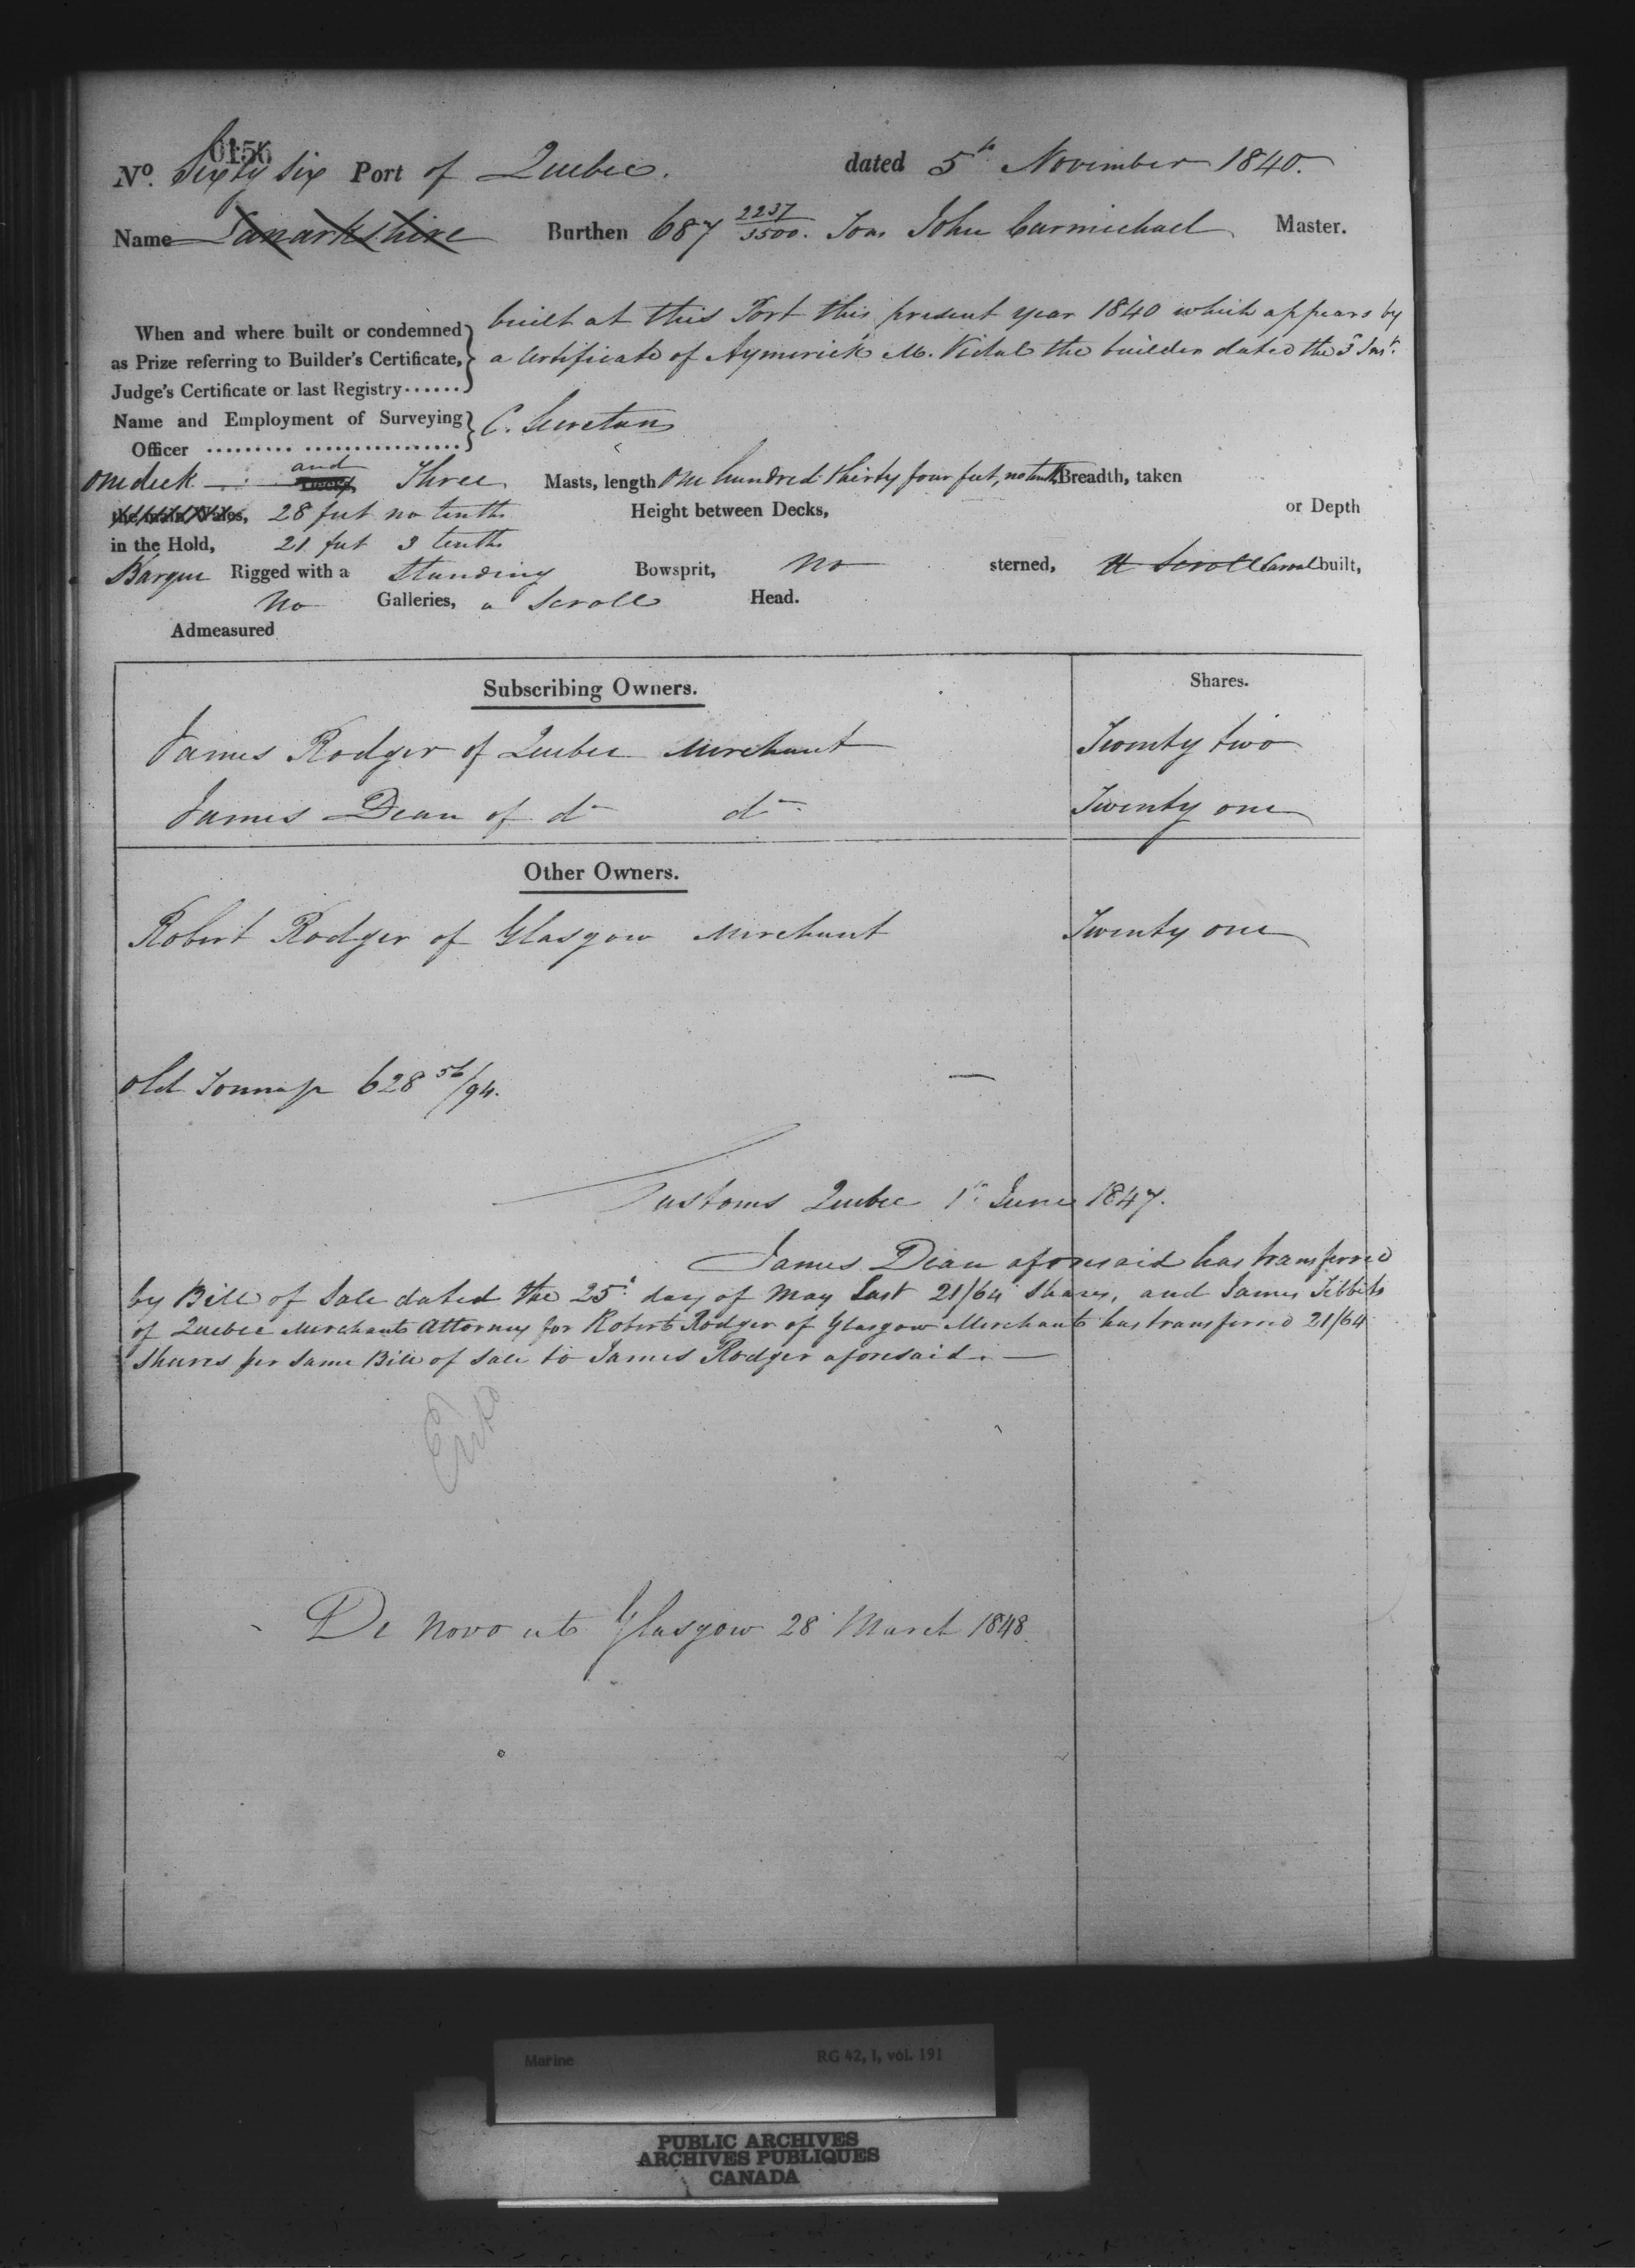 0156
No. Sixty six Port of Quebec. dated 5th November 1840.
Name Lanarkshire Burthen 687 2237/3500. Tons John Carmichael Master.
built at this Port this present year 1840 which appears by
When and where built or condemned
as Prize referring to Builder's Certificate, a Certificate of Aymerick M. Vidal the builder dated the 3d Inst.
Judge's Certificate or last Registry......
Name and Employment of Surveying C. Secretan
Officer ......... ................
and
One deck Decks Three Masts, length One hundred thirty four feet, no tenths Breadth, taken
the main Wales, 28 feet no tenths Height between Decks, or Depth
in the Hold, 21 feet 3 tenths
Barque Rigged with a Standing Bowsprit, No sterned, A Scroll Carvel built,
No Galleries, a Scroll Head.
Admeasured
Subscribing Owners. Shares.
James Rodger of Quebec Merchant Twenty two
James Dean of do do Twenty one
Other Owners.
Robert Rodger of Glasgow Merchant Twenty one
Old Tonnage 628 56/94.
Customs Quebec 1st June 1847.
James Dean aforesaid has transferred
by Bill of Sale dated the 25th day of May Last 21/64 Shares, and James Tibbits
of Quebec Merchant Attorney for Robert Rodger of Glasgow Merchant has transferred 21/64
Shares per same Bill of Sale to James Rodger aforesaid.
De Novo at Glasgow 28 March 1848
Marine RG 42, I, vol. 191
PUBLIC ARCHIVES
ARCHIVES PUBLIQUES
CANADA